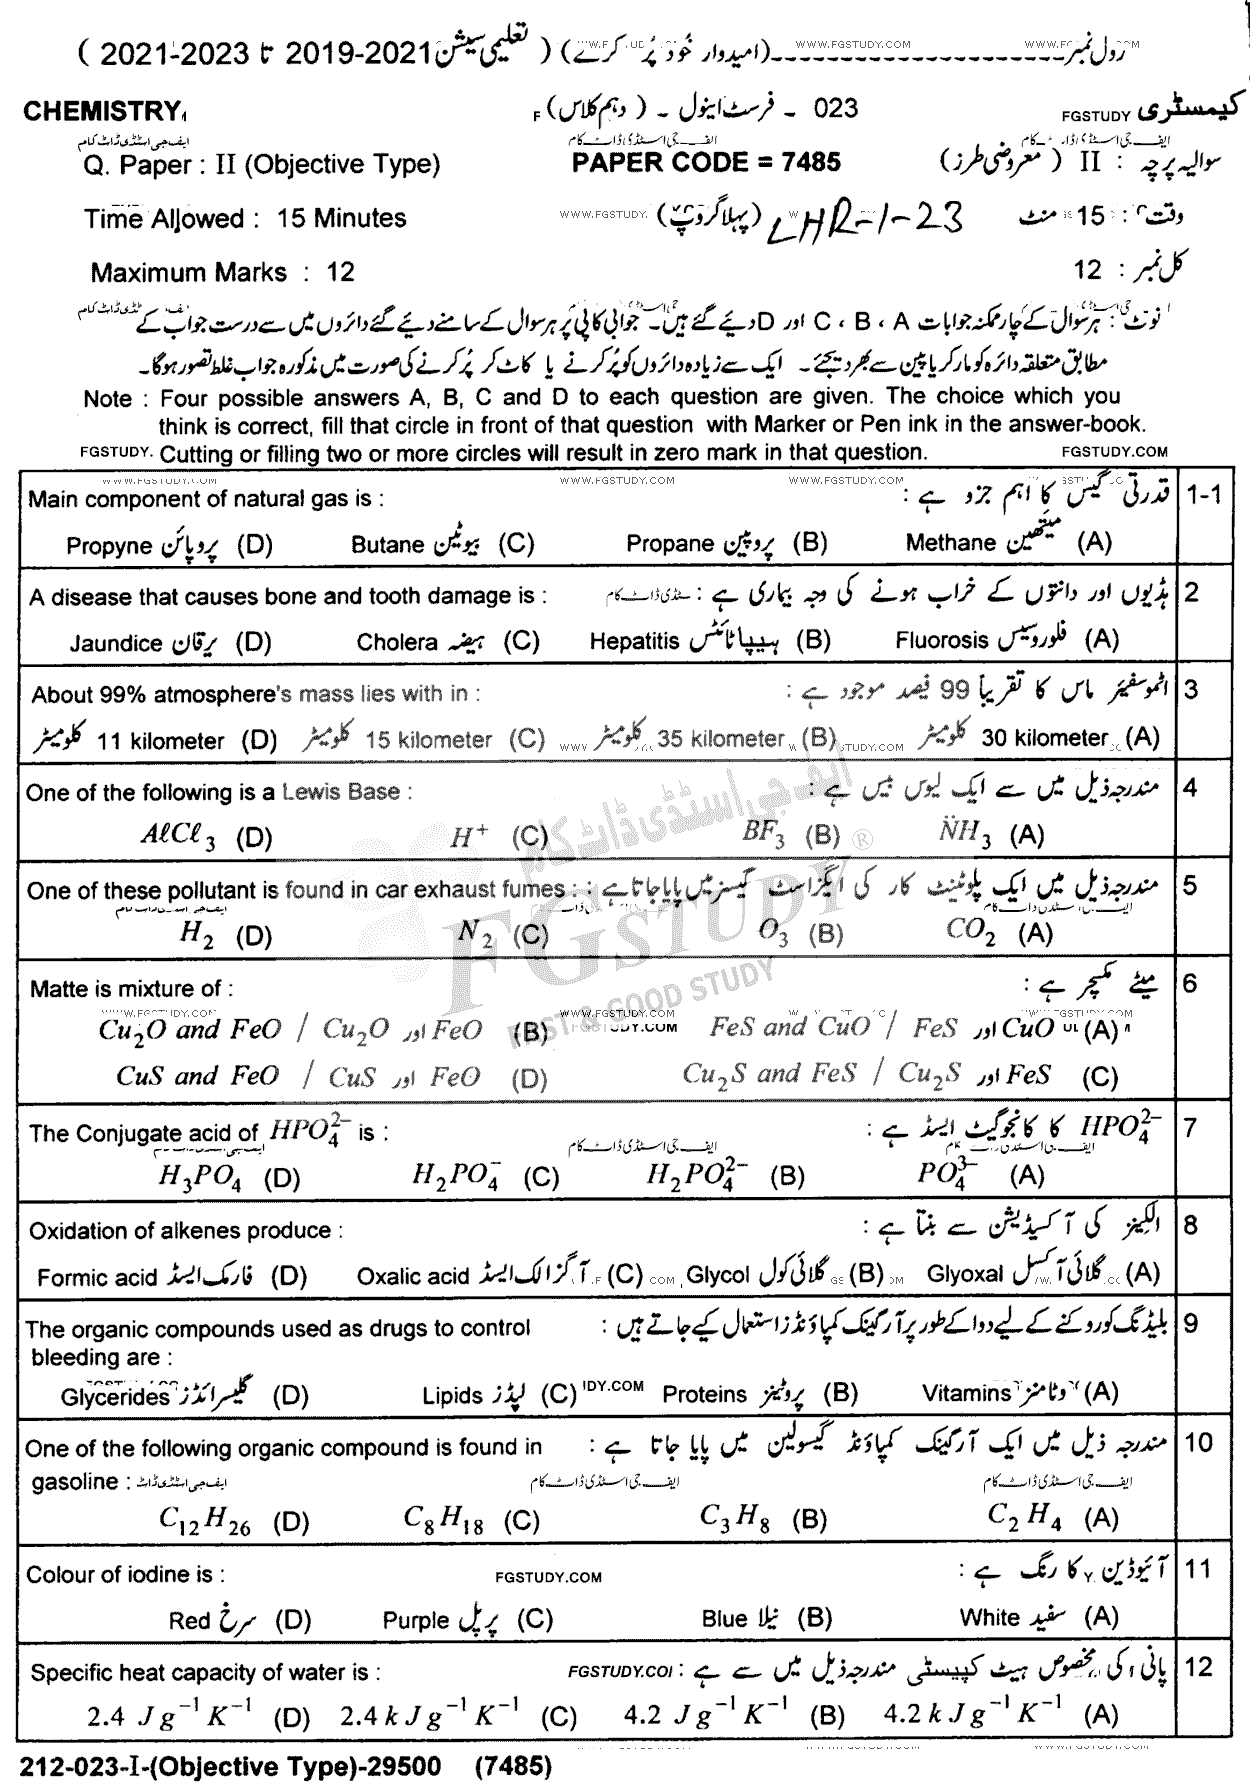 رول نمبر ----------------------(امیدوار خود پُر کرے) ( تعلیمی سیشن 2019-2021 تا 2021-2023 )
WWW.FGSTUDY.COM WWW.FGSTUDY.COM
CHEMISTRY 023 - فرسٹ اینول - ( دہم کلاس ) FGSTUDY کیمسٹری
ایف جی اسٹڈی ڈاٹ کام ایف جی اسٹڈی ڈاٹ کام ایف جی اسٹڈی ڈاٹ کام
Q. Paper : II (Objective Type) PAPER CODE = 7485 سوالیہ پرچہ : II ( معروضی طرز )
Time Allowed : 15 Minutes WWW.FGSTUDY. (پہلا گروپ) LHR-1-23 وقت : 15 منٹ
Maximum Marks : 12 کل نمبر : 12
نوٹ : ہر سوال کے چار ممکنہ جوابات A ، B ، C اور D دیئے گئے ہیں۔ جوابی کاپی پر ہر سوال کے سامنے دیئے گئے دائروں میں سے درست جواب کے
مطابق متعلقہ دائرہ کو مارکر یا پین سے بھر دیجئے۔ ایک سے زیادہ دائروں کو پُر کرنے یا کاٹ کر پُر کرنے کی صورت میں مذکورہ جواب غلط تصور ہوگا۔
Note : Four possible answers A, B, C and D to each question are given. The choice which you
think is correct, fill that circle in front of that question with Marker or Pen ink in the answer-book.
FGSTUDY. Cutting or filling two or more circles will result in zero mark in that question. FGSTUDY.COM
WWW.FGSTUDY.COM WWW.FGSTUDY.COM
Main component of natural gas is : قدرتی گیس کا اہم جزو ہے : 1-1
Propyne پروپائن (D) Butane بیوٹین (C) Propane پروپین (B) Methane میتھین (A)
A disease that causes bone and tooth damage is : ہڈیوں اور دانتوں کے خراب ہونے کی وجہ بیماری ہے : 2
Jaundice یرقان (D) Cholera ہیضہ (C) Hepatitis ہیپاٹائٹس (B) Fluorosis فلوروسیس (A)
About 99% atmosphere's mass lies with in : اٹموسفیئر ماس کا تقریباً 99 فیصد موجود ہے : 3
11 kilometer کلومیٹر (D) 15 kilometer کلومیٹر (C) 35 kilometer کلومیٹر (B) 30 kilometer کلومیٹر (A)
One of the following is a Lewis Base : مندرجہ ذیل میں سے ایک لیوس بیس ہے : 4
AℓCℓ₃ (D) H⁺ (C) BF₃ (B) N̈H₃ (A)
One of these pollutant is found in car exhaust fumes : مندرجہ ذیل میں ایک پلوٹینٹ کار کی ایگزاسٹ گیسز میں پایا جاتا ہے : 5
H₂ (D) N₂ (C) O₃ (B) CO₂ (A)
FGSTUDY ®
FAST & GOOD STUDY
ایف جی اسٹڈی ڈاٹ کام
Matte is mixture of : میٹے مکسچر ہے : 6
Cu₂O and FeO / Cu₂O اور FeO (B) FeS and CuO / FeS اور CuO (A)
CuS and FeO / CuS اور FeO (D) Cu₂S and FeS / Cu₂S اور FeS (C)
The Conjugate acid of HPO₄²⁻ is : HPO₄²⁻ کا کانجوگیٹ ایسڈ ہے : 7
H₃PO₄ (D) H₂PO₄⁻ (C) H₂PO₄²⁻ (B) PO₄³⁻ (A)
Oxidation of alkenes produce : الکینز کی آکسیڈیشن سے بنتا ہے : 8
Formic acid فارمک ایسڈ (D) Oxalic acid آگزالک ایسڈ (C) Glycol گلائی کول (B) Glyoxal گلائی آکسل (A)
The organic compounds used as drugs to control بلیڈنگ کو روکنے کے لیے دوا کے طور پر آرگینک کمپاؤنڈز استعمال کیے جاتے ہیں : 9
bleeding are :
Glycerides گلیسرائڈز (D) Lipids لپڈز (C) Proteins پروٹینز (B) Vitamins وٹامنز (A)
One of the following organic compound is found in مندرجہ ذیل میں ایک آرگینک کمپاؤنڈ گیسولین میں پایا جاتا ہے : 10
gasoline :
C₁₂H₂₆ (D) C₈H₁₈ (C) C₃H₈ (B) C₂H₄ (A)
Colour of iodine is : FGSTUDY.COM آئیوڈین کا رنگ ہے : 11
Red سرخ (D) Purple پرپل (C) Blue نیلا (B) White سفید (A)
Specific heat capacity of water is : پانی کی مخصوص ہیٹ کپیسٹی مندرجہ ذیل میں سے ہے : 12
2.4 Jg⁻¹K⁻¹ (D) 2.4kJg⁻¹K⁻¹ (C) 4.2 Jg⁻¹K⁻¹ (B) 4.2kJg⁻¹K⁻¹ (A)
212-023-I-(Objective Type)-29500 (7485)